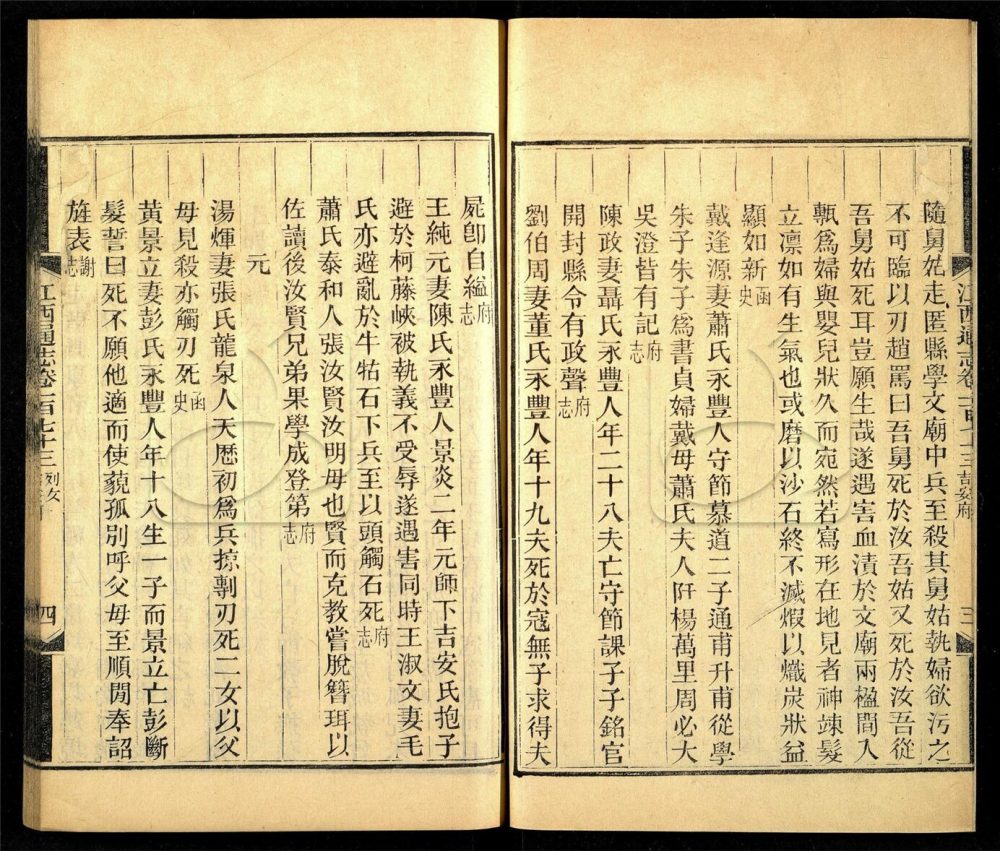 隨舅姑走匿縣學文廟中兵至殺其舅姑執婦欲污之
不可臨以刃趙罵曰吾舅死於汝吾姑又死於汝吾從
吾舅姑死耳豈願生哉遂遇害血漬於文廟兩楹間入
甎爲婦與嬰兒狀久而宛然若寫形在地見者神竦髮
立凛如有生氣也或磨以沙石終不滅煆以熾炭狀益
顯如新函史
戴逢源妻蕭氏永豐人守節慕道二子通甫升甫從學
朱子朱子爲書貞婦戴母蕭氏夫人阡楊萬里周必大
吳澄皆有記府志
陳政妻聶氏永豐人年二十八夫亡守節課子子銘官
開封縣令有政聲府志
劉伯周妻董氏永豐人年十九夫死於寇無子求得夫
江西通志卷一百七十三 吉安府 三
屍卽自縊府志
王純元妻陳氏永豐人景炎二年元師下吉安氏抱子
避於柯藤峽被執義不受辱遂遇害同時王淑文妻毛
氏亦避亂於牛牯石下兵至以頭觸石死府志
蕭氏泰和人張汝賢汝明母也賢而克教嘗脫簪珥以
佐讀後汝賢兄弟果學成登第府志
元
湯煇妻張氏龍泉人天歷初爲兵掠剚刃死二女以父
母見殺亦觸刃死函史
黃景立妻彭氏永豐人年十八生一子而景立亡彭斷
髮誓曰死不願他適而使藐孤別呼父母至順間奉詔
旌表謝志
江西通志卷一百七十三 列女 四